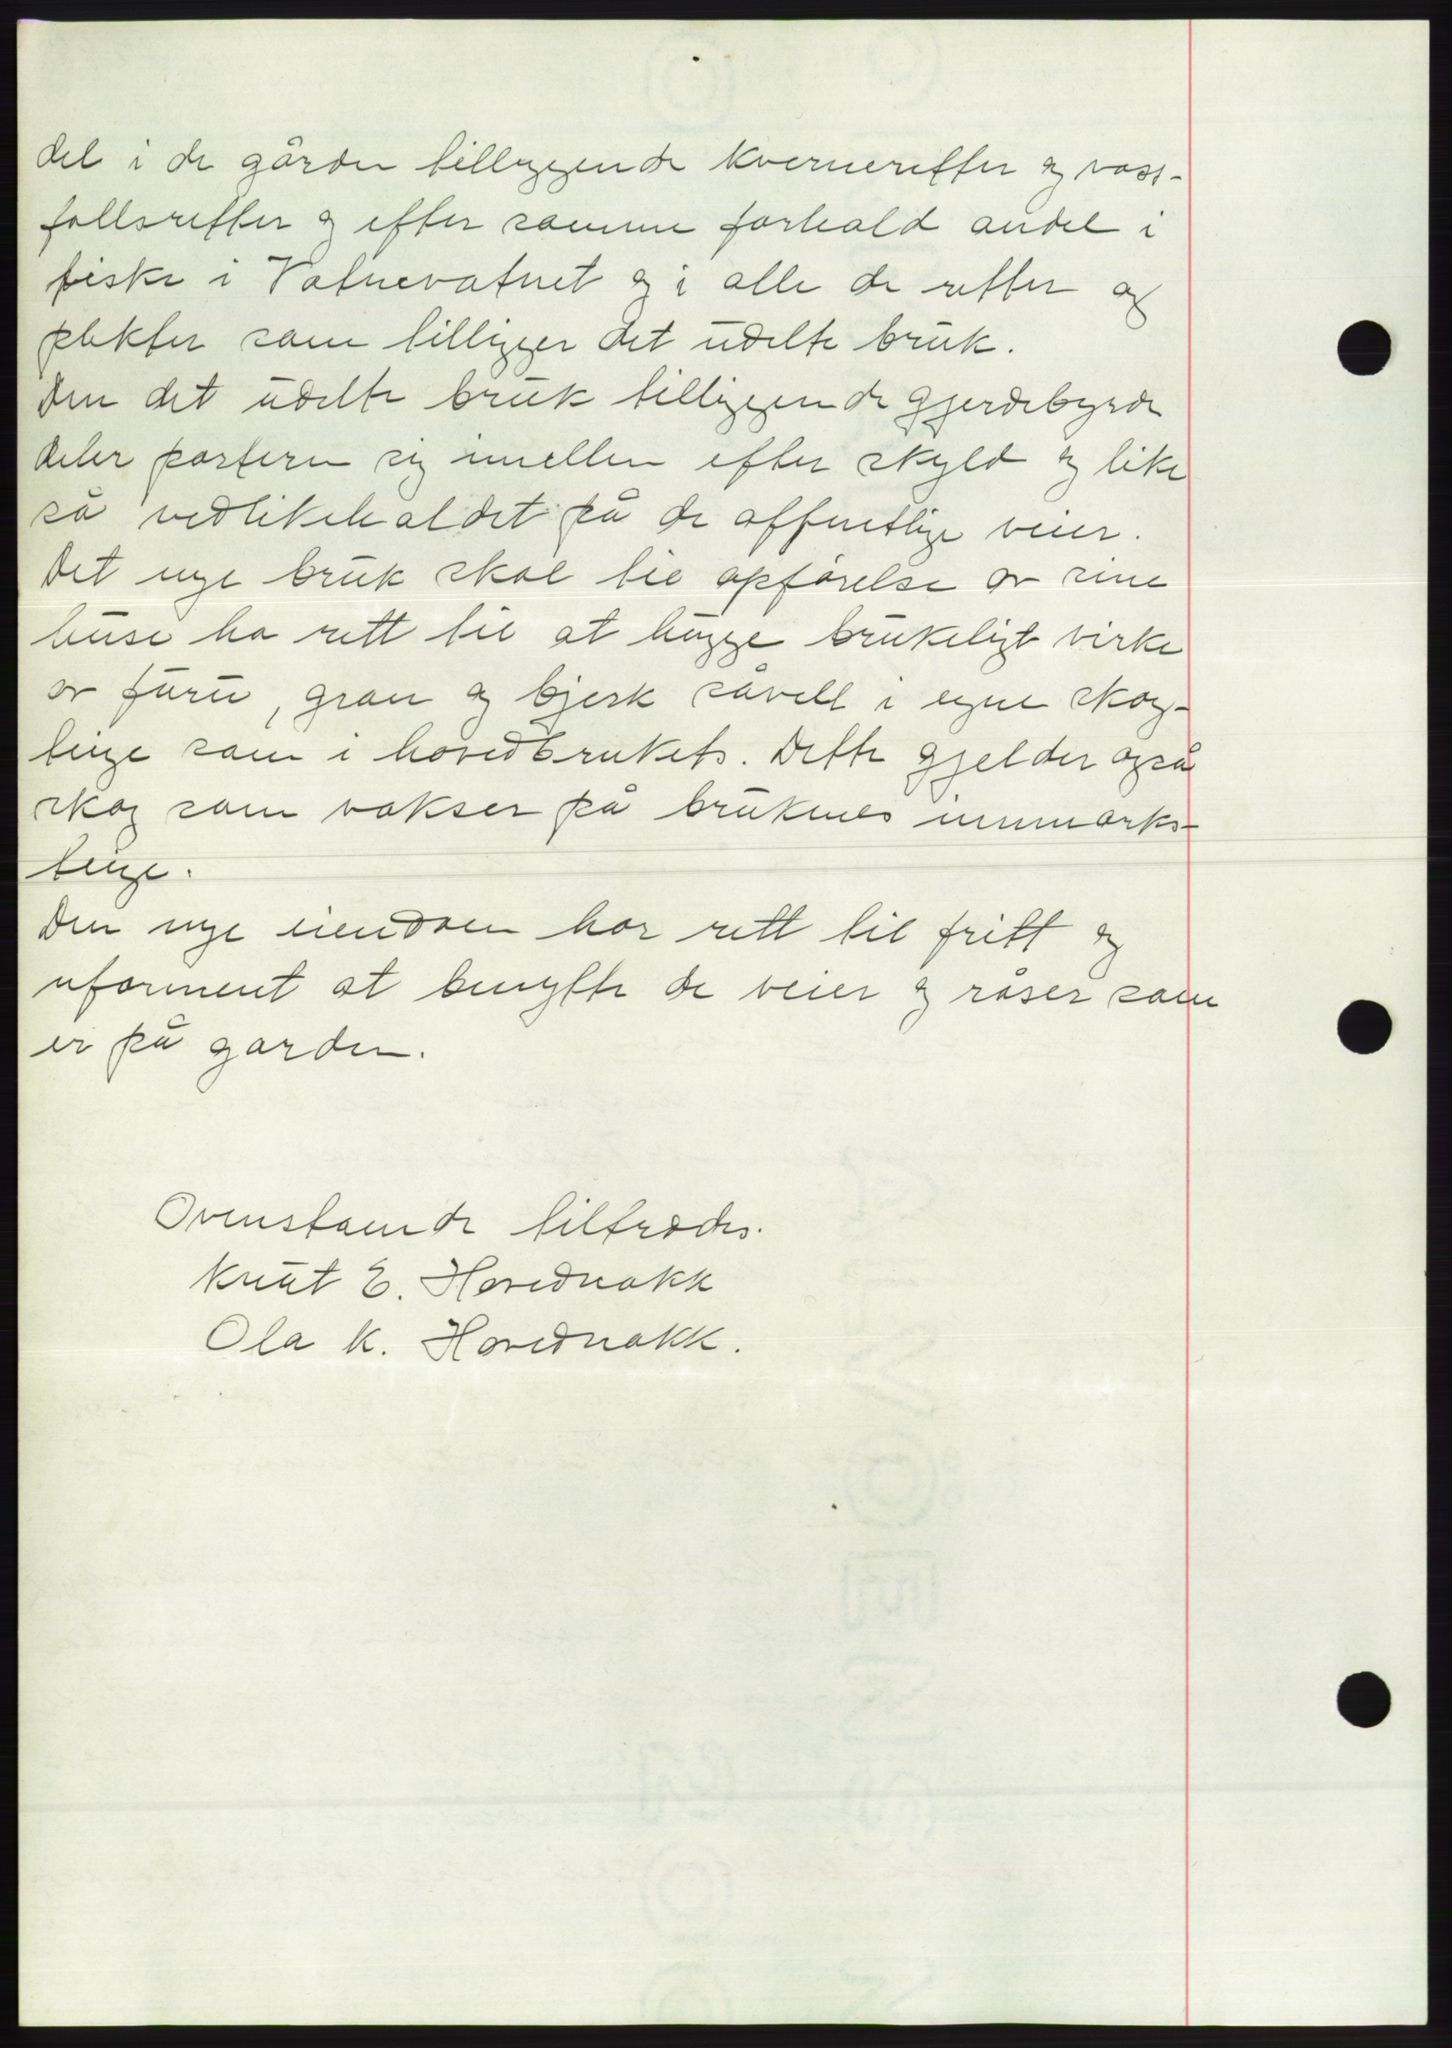 del i de gården tilliggende kverneretter og vass-
fallsretter og efter samme forhold andel i
fiske i Vatnevatnet og i alle de retter og
plikter som tilligger det udelte bruk.
Den det udelte bruk tilliggende gjerdebyrde
deler partene sig imellem efter skyld og like
så vedlikeholdet på de offentlige veier.
Det nye bruk skal til opførelse av sine
huse ha rett til at hugge brukeligt virke
av furu, gran og bjerk såvell i egne skog-
teige som i hovedbrukets. Dette gjelder også
skog som vokser på brukenes innmarks-
teige.
Den nye eiendom har rett til fritt og
uforment at benytte de veier og råser som
er på garden.
Ovenstående tiltrædes.
Knut E. Hovednakk
Ola K. Hovednakk.